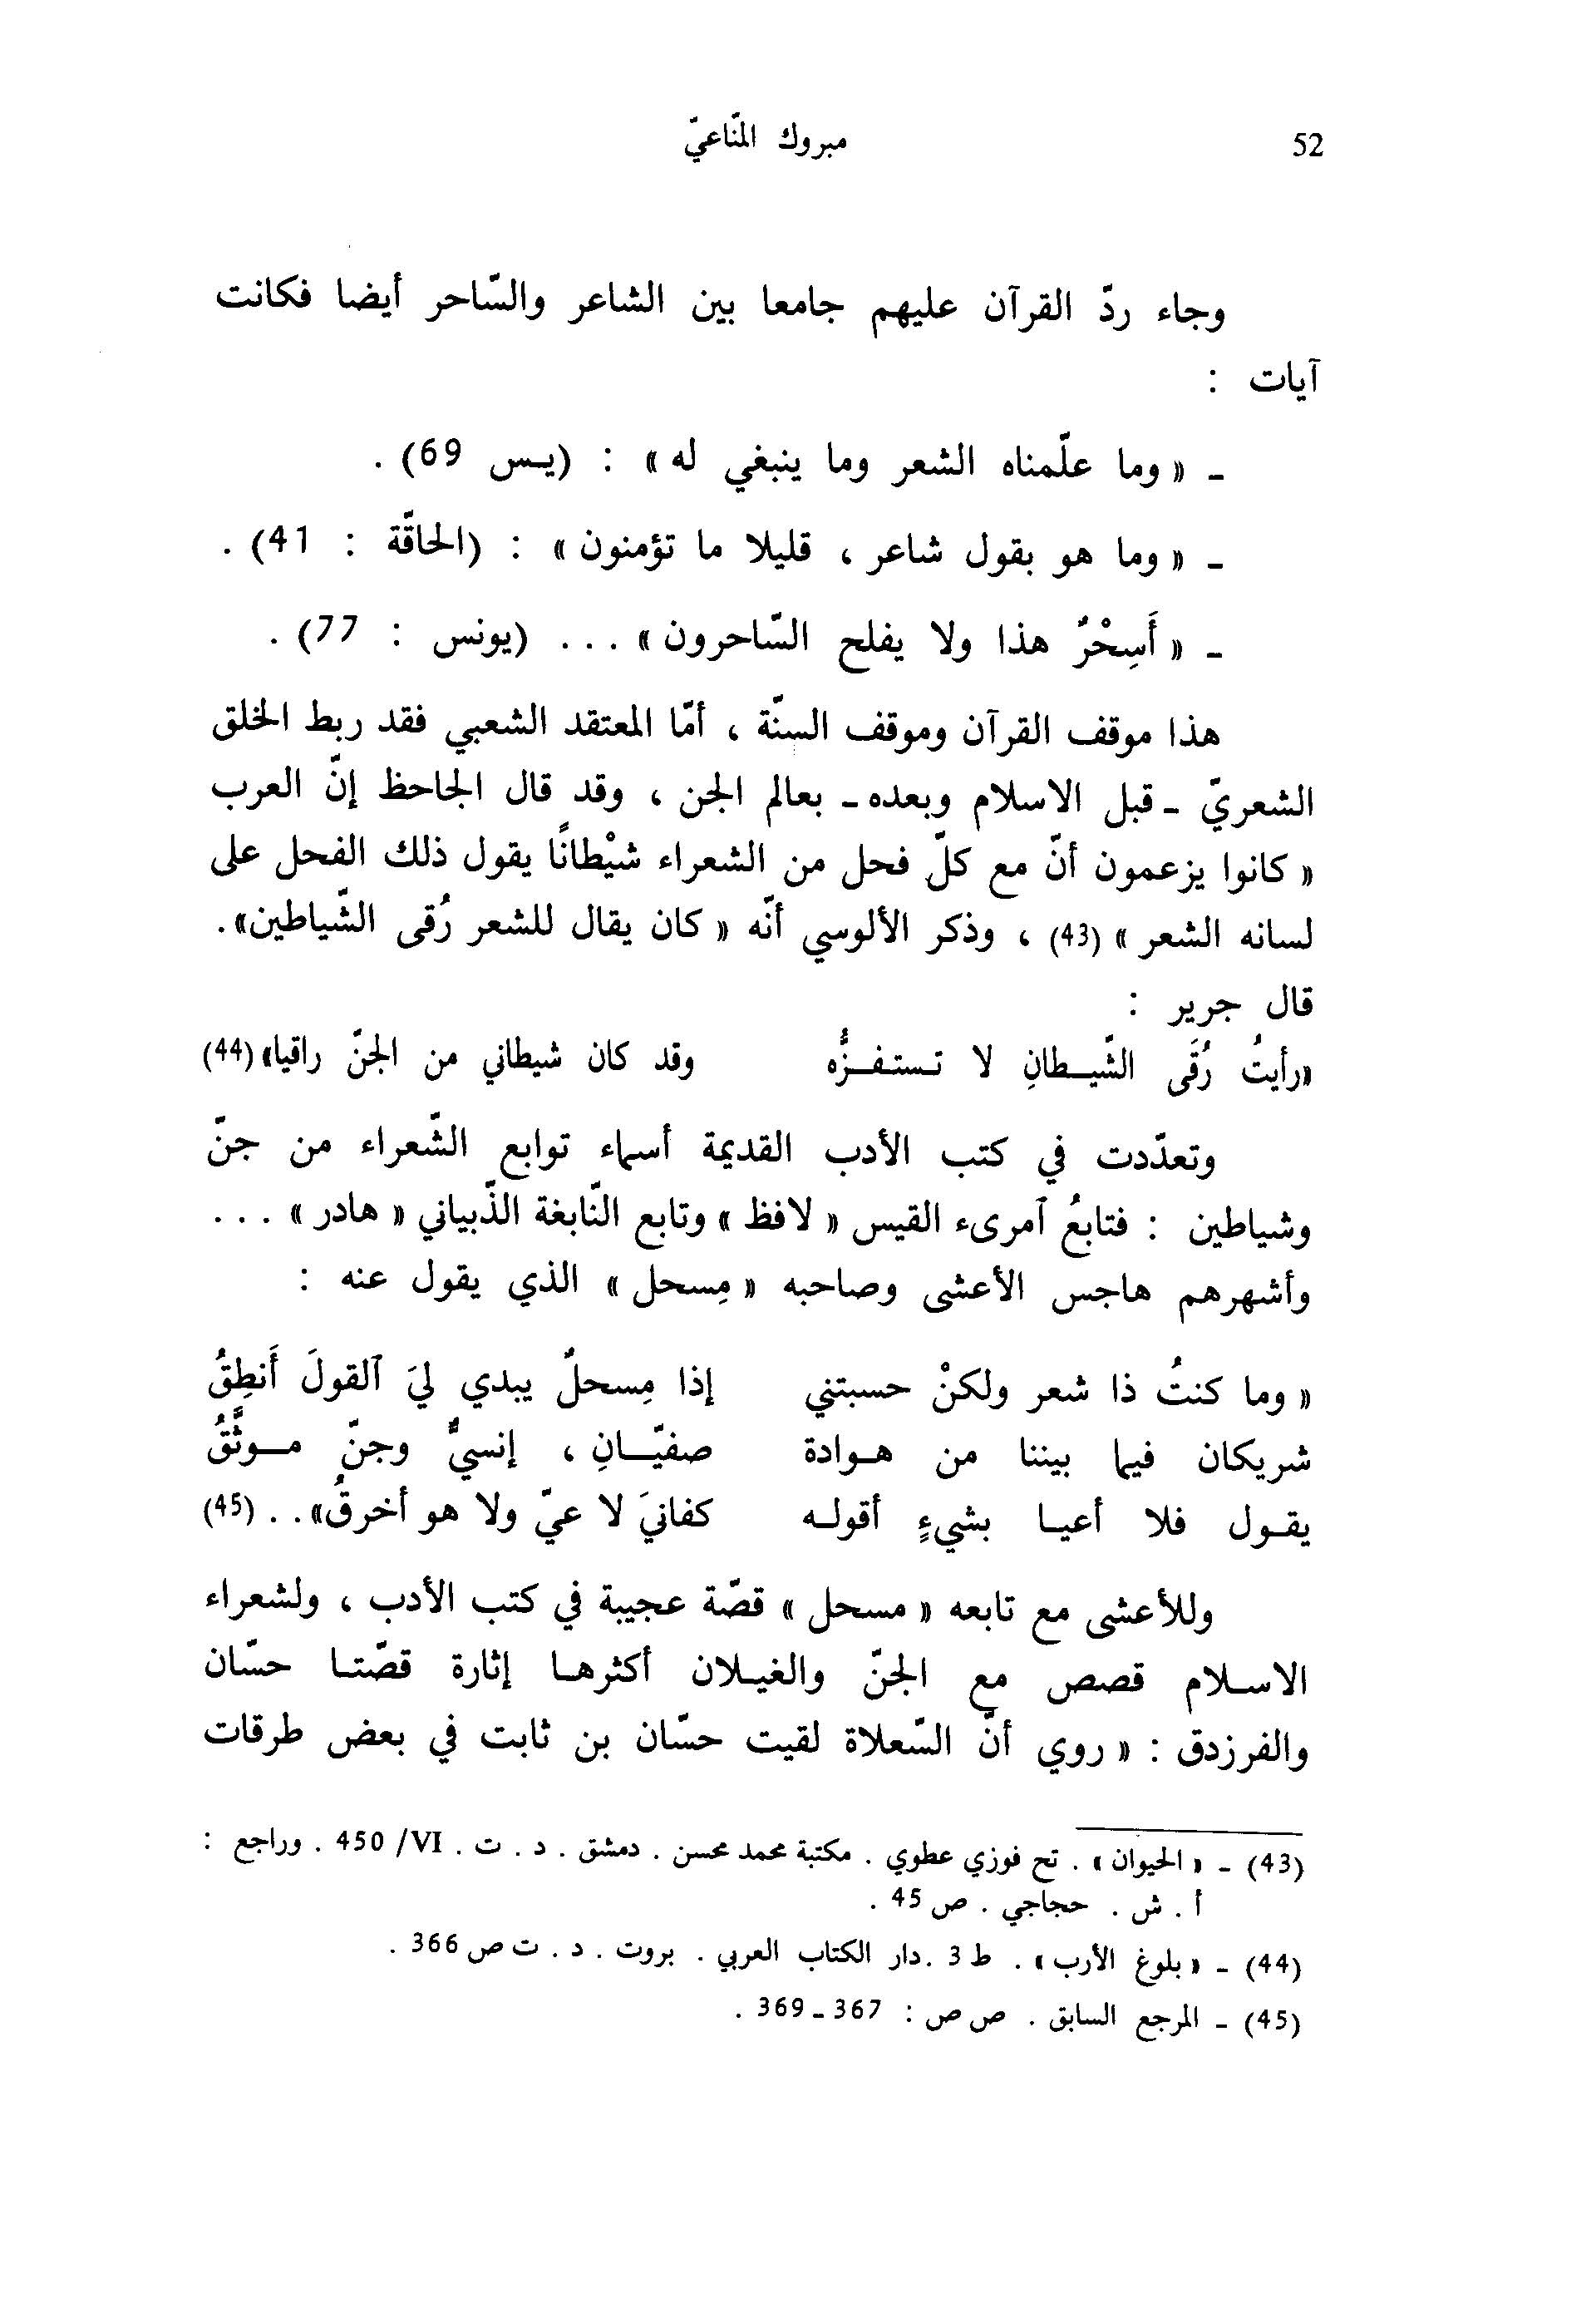 52
مبروك المنّاعيّ
وجاء ردّ القرآن عليهم جامعا بين الشاعر والسّاحر أيضا فكانت
آيات :
ـ « وما علّمناه الشعر وما ينبغي له » : (يـس 69) .
ـ « وما هو بقول شاعر ، قليلا ما تؤمنون » : (الحاقّة : 41) .
ـ « أَسِحْرٌ هذا ولا يفلح السّاحرون » . . . (يونس : 77) .
هذا موقف القرآن وموقف السنّة ، أمّا المعتقد الشعبي فقد ربط الخلق
الشعريّ ـ قبل الاسلام وبعده ـ بعالم الجن ، وقد قال الجاحظ إنّ العرب
« كانوا يزعمون أنّ مع كلّ فحل من الشعراء شيْطانًا يقول ذلك الفحل على
لسانه الشعر » (43) ، وذكر الألوسي أنّه « كان يقال للشعر رُقى الشّياطين».
قال جرير :
«رأيتُ رُقَى الشّيـطانِ لا تـستـفـزُّه وقد كان شيطاني من الجنّ راقيا» (44)
وتعدّدت في كتب الأدب القديمة أسماء توابع الشّعراء من جنّ
وشياطين : فتابعُ آمرىء القيس « لافظ » وتابع النّابغة الذّبياني « هادر » . . .
وأشهرهم هاجس الأعشى وصاحبه « مِسحل » الذي يقول عنه :
« وما كنتُ ذا شعر ولكنْ حسبتني إذا مِسحلٌ يبدي ليَ آلقولَ أَنطِقُ
شريكان فيما بيننا من هـوادة صفيّـانِ ، إنسيٌّ وجنّ مـوثَّقُ
يقـول فلا أعيـا بشيءٍ أقولـه كفانيَ لا عيّ ولا هو أخرقُ» . . (45)
وللأعشى مع تابعه « مسحل » قصّة عجيبة في كتب الأدب ، ولشعراء
الاسـلام قصص مع الجنّ والغيـلان أكثرهـا إثارة قصّتـا حسّان
والفرزدق : « روي أنّ السّعلاة لقيت حسّان بن ثابت في بعض طرقات
(43) ـ « الحيوان » . تح فوزي عطوي . مكتبة محمد محسن . دمشق . د . ت . VI/ 450 . وراجع :
أ . ش . حجاجي . ص 45 .
(44) ـ « بلوغ الأرب » . ط 3 . دار الكتاب العربي . بروت . د . ت ص 366 .
(45) ـ المرجع السابق . ص ص : 367 ـ 369 .